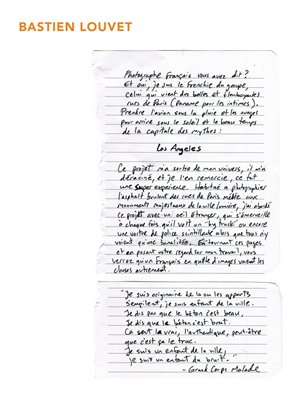 BASTIEN LOUVET
Photographe Français vous avez dit ?
Et oui, je suis le Frenchie du groupe,
celui qui vient des belles et flamboyantes
rues de Paris (Paname pour les intimes).
Prendre l'avion sous la pluie et les nuages
pour arrivé sous le soleil et le beau temps
de la capitale des mythes :
Los Angeles
Ce projet m'a sortie de mon univers, il m'a
déraciné, et je l'en remercie, ce fût
une super experience. Habitué a photographier
l'asphalt foulant des rues de Paris mêlée aux
monuments majestueux de la ville lumière, j'ai abordé
ce projet avec un oeil étranger, qui s'émerveille
à chaque fois qu'il voit un "big truck" ou encore
une voiture de police scintillante alors que tous n'y
voient qu'une banalitée. En tournant ces pages
et en posant votre regard sur mon travail, vous
verrez qu'un français en quête d'images voient les
choses autrement.
"Je suis originaire de là ou les apparts
s'empilent, je suis enfant de la ville.
Je dis pas que le béton c'est beau,
Je dis que le béton c'est brut.
Ca sent le vrai, l'authentique, peut-être
que c'est ça le truc.
Je suis un enfant de la ville,
je suis un enfant du bruit."
- Grand Corps Malade